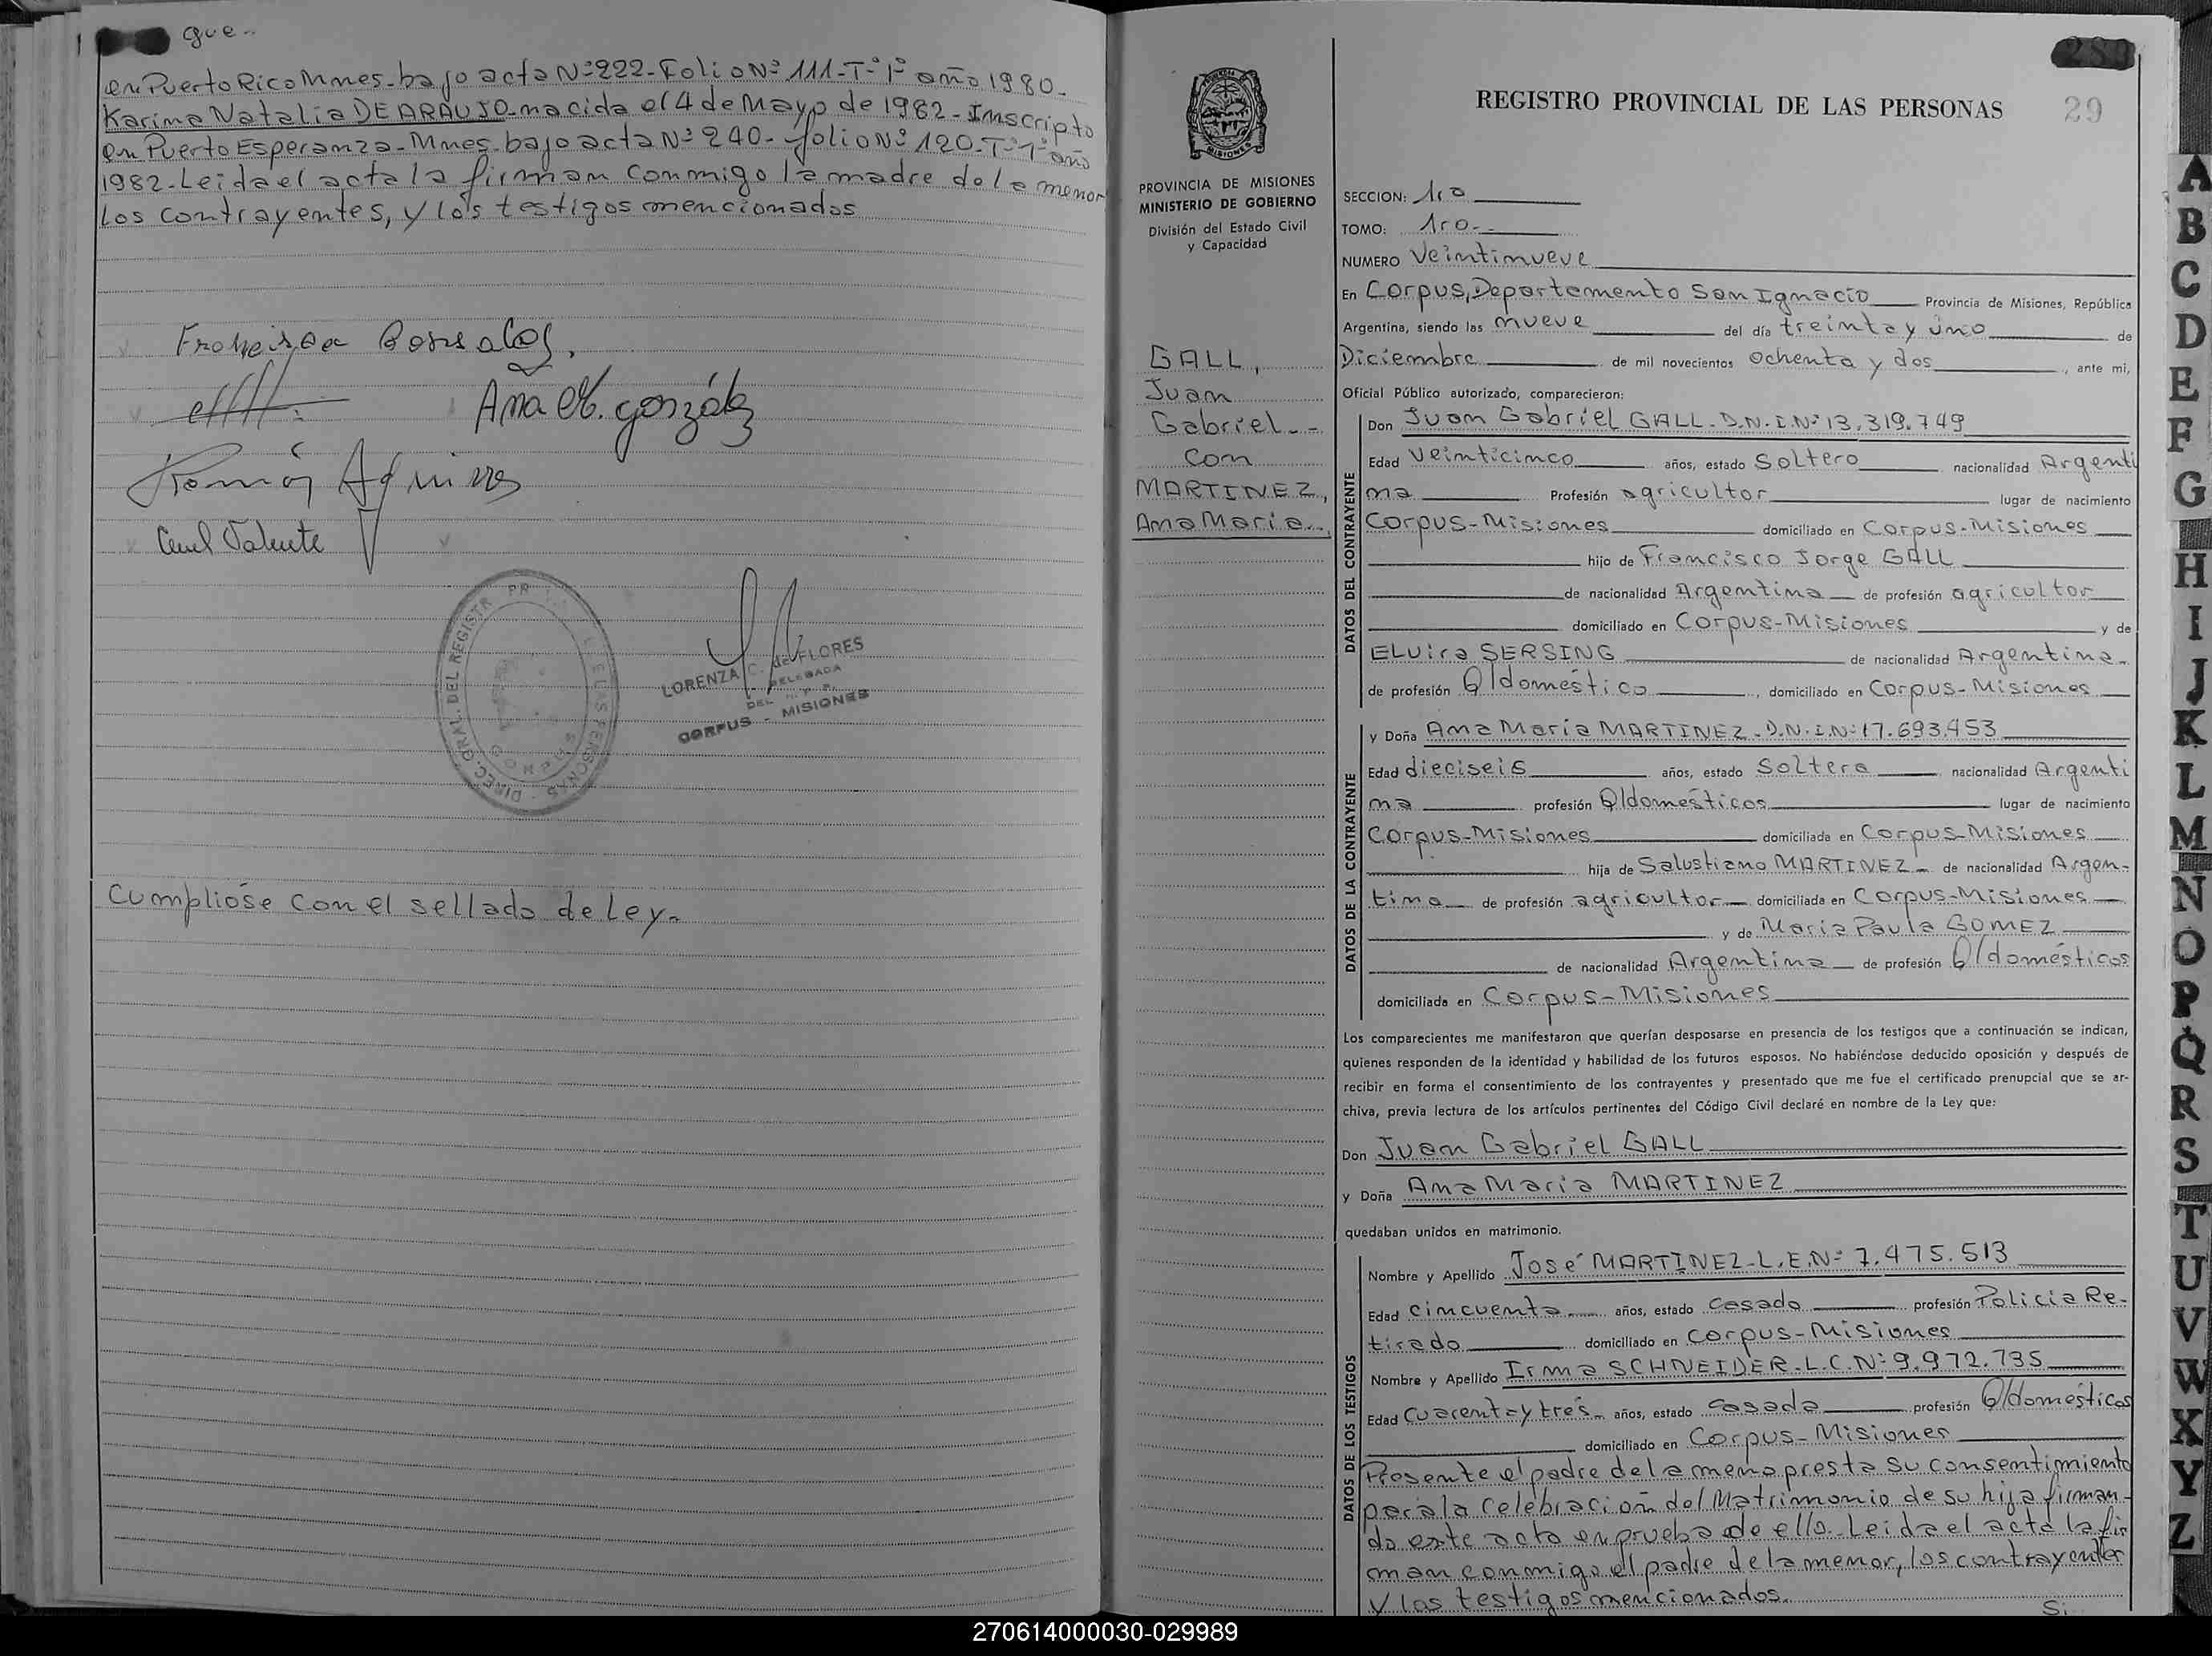 que--
en Puerto Rico Mnes- bajo acta Nº 222- Folio Nº 111- Tº 1º año 1980-
Karina Natalia DE ARAUJO- nacida el 4 de Mayo de 1982- Inscripto
en Puerto Esperanza- Mnes- bajo acta Nº 240- folio Nº 120- Tº 1º año
1982- Leida el acta la firman conmigo la madre de la menor
los contrayentes, y los testigos mencionados
Ana M. gonzález
Ramón Aguirre
LORENZA C. de FLORES
DELEGADA
DEL R. P. P.
CORPUS - MISIONES
Cumplióse con el sellado de Ley-
289
REGISTRO PROVINCIAL DE LAS PERSONAS 29
MISIONES
PROVINCIA DE MISIONES
MINISTERIO DE GOBIERNO
División del Estado Civil
y Capacidad
GALL,
Juan
Gabriel--
con
MARTINEZ,
Ana Maria
SECCION: 1ra
TOMO: 1ro-
NUMERO Veintinueve
En Corpus, Departamento San Ignacio Provincia de Misiones, República
Argentina, siendo las nueve del día treinta y uno de
Diciembre de mil novecientos ochenta y dos, ante mi,
Oficial Público autorizado, comparecieron:
DATOS DEL CONTRAYENTE
Don Juan Gabriel GALL- D.N.I.Nº 13.319.749
Edad Veinticinco años, estado Soltero nacionalidad Argenti
na Profesión agricultor lugar de nacimiento
Corpus-Misiones domiciliado en Corpus-Misiones
hijo de Francisco Jorge GALL
de nacionalidad Argentina de profesión agricultor
domiciliado en Corpus-Misiones y de
Elvira SERSING de nacionalidad Argentina-
de profesión Q/doméstico, domiciliado en Corpus-Misiones
DATOS DE LA CONTRAYENTE
y Doña Ana Maria MARTINEZ- D.N.I.Nº 17.693.453
Edad dieciseis años, estado Soltera nacionalidad Argenti
na profesión Q/domésticos lugar de nacimiento
Corpus-Misiones domiciliada en Corpus-Misiones
hija de Salustiano MARTINEZ- de nacionalidad Argen-
tina de profesión agricultor domiciliada en Corpus-Misiones
y de Maria Paula GOMEZ
de nacionalidad Argentina de profesión Q/domésticos
domiciliada en Corpus-Misiones
Los comparecientes me manifestaron que querían desposarse en presencia de los testigos que a continuación se indican,
quienes responden de la identidad y habilidad de los futuros esposos. No habiéndose deducido oposición y después de
recibir en forma el consentimiento de los contrayentes y presentado que me fue el certificado prenupcial que se ar-
chiva, previa lectura de los artículos pertinentes del Código Civil declaré en nombre de la Ley que:
Don Juan Gabriel GALL
y Doña Ana Maria MARTINEZ
quedaban unidos en matrimonio.
DATOS DE LOS TESTIGOS
Nombre y Apellido José MARTINEZ- L.E.Nº 7.475.513
Edad cincuenta años, estado casado profesión Policia Re-
tirado domiciliado en Corpus-Misiones
Nombre y Apellido Irma SCHNEIDER- L.C.Nº 9.972.735
Edad Cuarenta y trés- años, estado casada profesión Q/domésticos
domiciliado en Corpus-Misiones
Presente el padre de la meno presta su consentimiento
para la celebración del Matrimonio de su hija firman-
do este acto en prueba de ello- Leida el acta la fir
man conmigo el padre de la menor, los contrayentes
y los testigos mencionados.
Si
A
B
C
D
E
F
G
H
I
J
K
L
M
N
O
P
Q
R
S
T
U
V
W
X
Y
Z
270614000030-029989